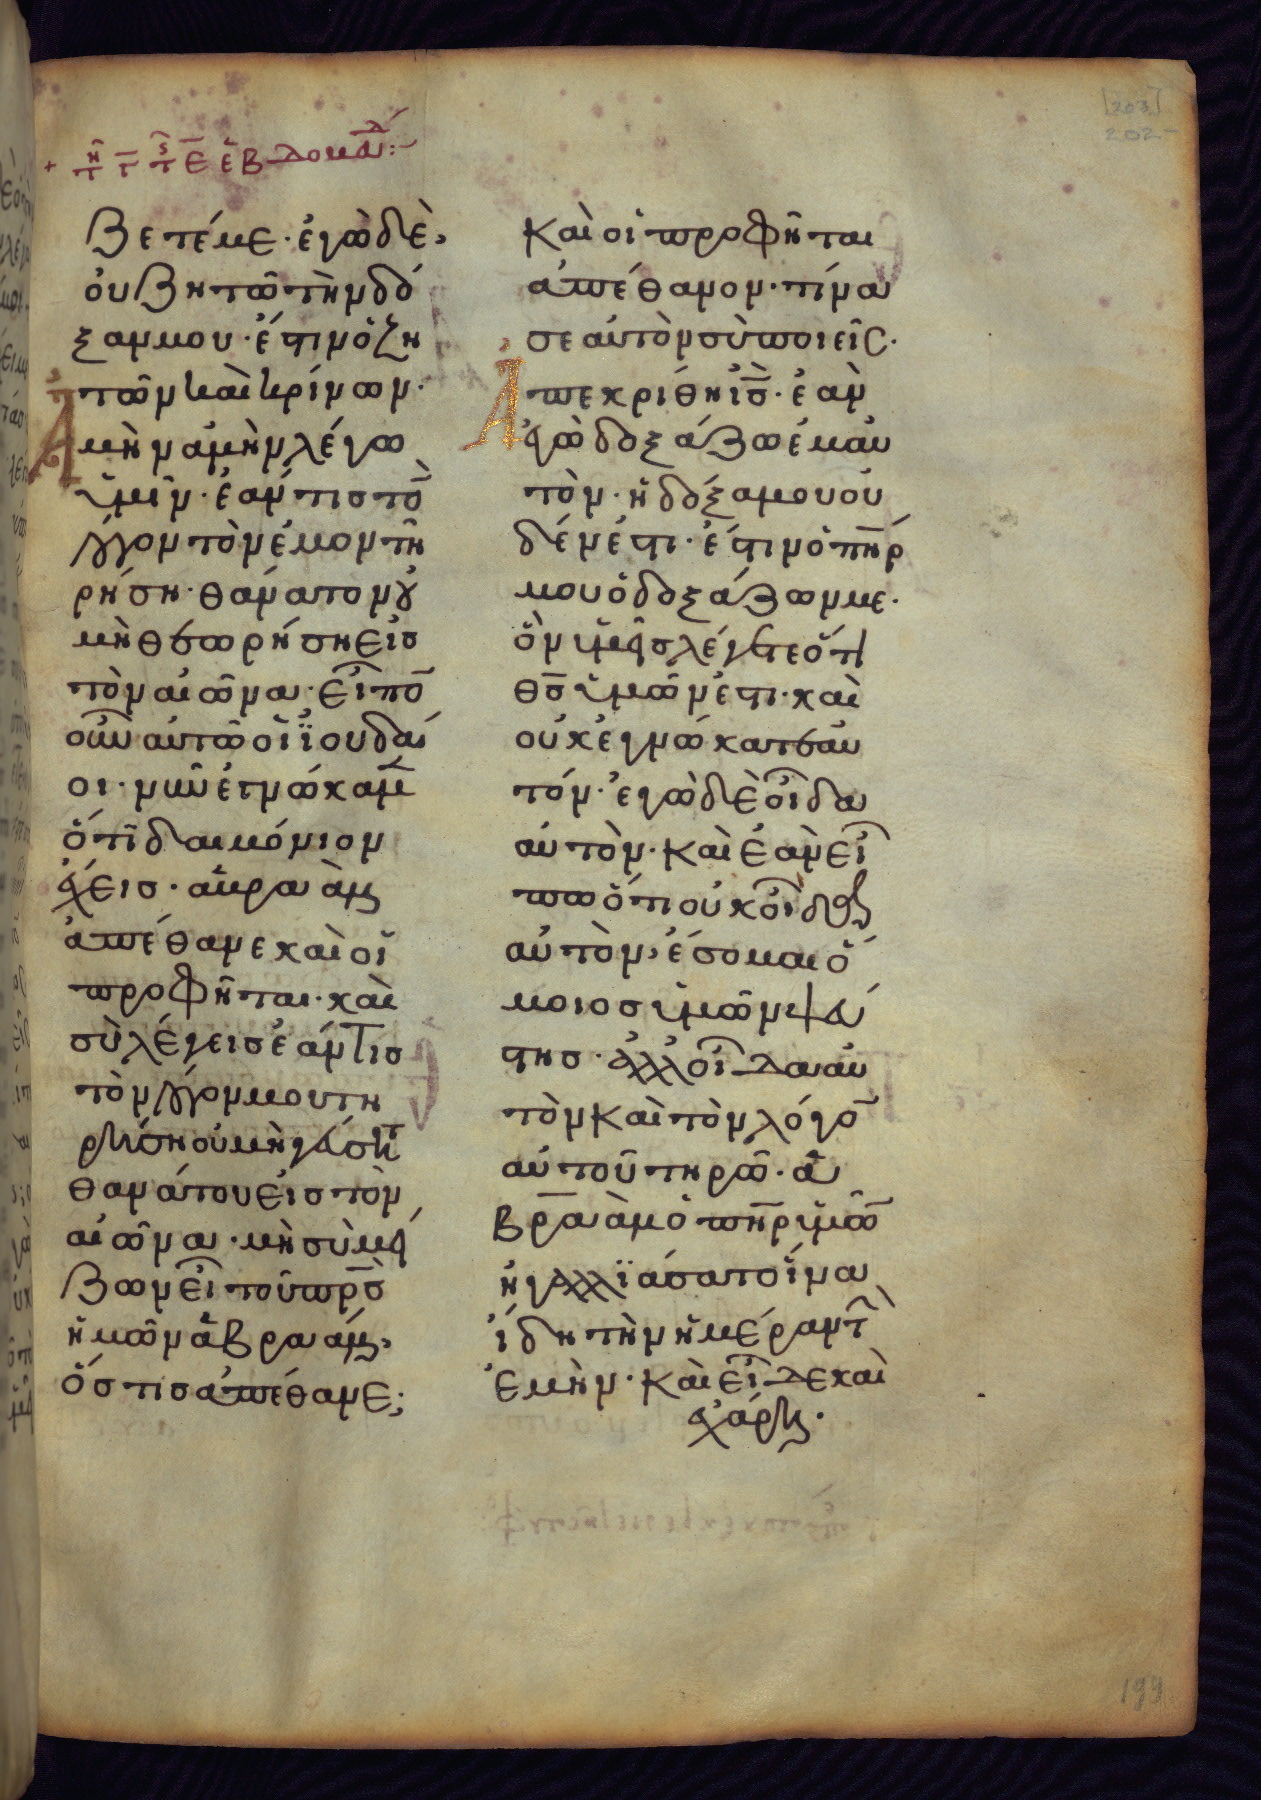 + τῆ γ̅ τῆς ε̅ ἑβδομάδ:-
βετέμε· ἐγὼ δὲ,
οὐ ζητῶ τὴν δό
ξαν μου· ἔστιν ὁ ζη
τῶν καὶ κρίνων·
Ἀμὴν ἀμὴν λέγω
ὑμῖν· ἐάν τις τὸ̅
λόγον τὸν ἐμὸν τη
ρήση· θάνατον οὐ
μὴ θεωρήση εἰς
τὸν αἰῶνα· εἶπο̅
οὖν αὐτῶ οἱ ϊουδαῖ
οι· νῦν ἐγνώκαμε̅
ὅτι δαιμόνιον
ἔχεις· ἀβραὰμ
ἀπέθανε καὶ οἱ
προφῆται· καὶ
σὺ λέγεις ἐάν τις
τὸν λόγον μου τη
ρήση οὐ μὴ γεύσητ
θανάτου εἰς τὸν
αἰῶνα· μὴ σὺ μεί
ζων εἶ τοῦ πρ̅ς
ἡμῶν ἀβραάμ,
ὅστις ἀπέθανε;
Καὶ οἱ προφῆται
ἀπέθανον· τίνα
σεαυτὸν σὺ ποιεῖς·
Ἀπεκρίθη ἰ̅ς̅· ἐὰν
ἐγὼ δοξάζω ἐμαυ
τὸν· ἡ δόξα μου οὐ
δέν ἐστι· ἔστιν ὁ π̅η̅ρ
μου ὁ δοξάζων με·
ὃν ὑμεῖς λέγετε ὅτι
θ̅ς̅ ὑμῶν ἐστι· καὶ
οὐκ ἐγνώκατε αὐ
τόν· ἐγὼ δὲ οἶδα
αὐτὸν· καὶ ἐὰν εἴ
πω ὅτι οὐκ οἶδα
αὐτὸν, ἔσομαι ὅ
μοιος ὑμῶν ψεύ
στης· ἀλλ οἶδα αὐ
τὸν καὶ τὸν λόγο̅
αὐτοῦ τηρῶ· ἀ
βραὰμ ὁ π̅η̅ρ ὑμῶ̅
ἠγαλλϊάσατο ἵνα
ἴδη τὴν ἡμέραν τὴ̅
ἐμὴν· καὶ εἶδε καὶ
ἐχάρη·
[203]
202
199